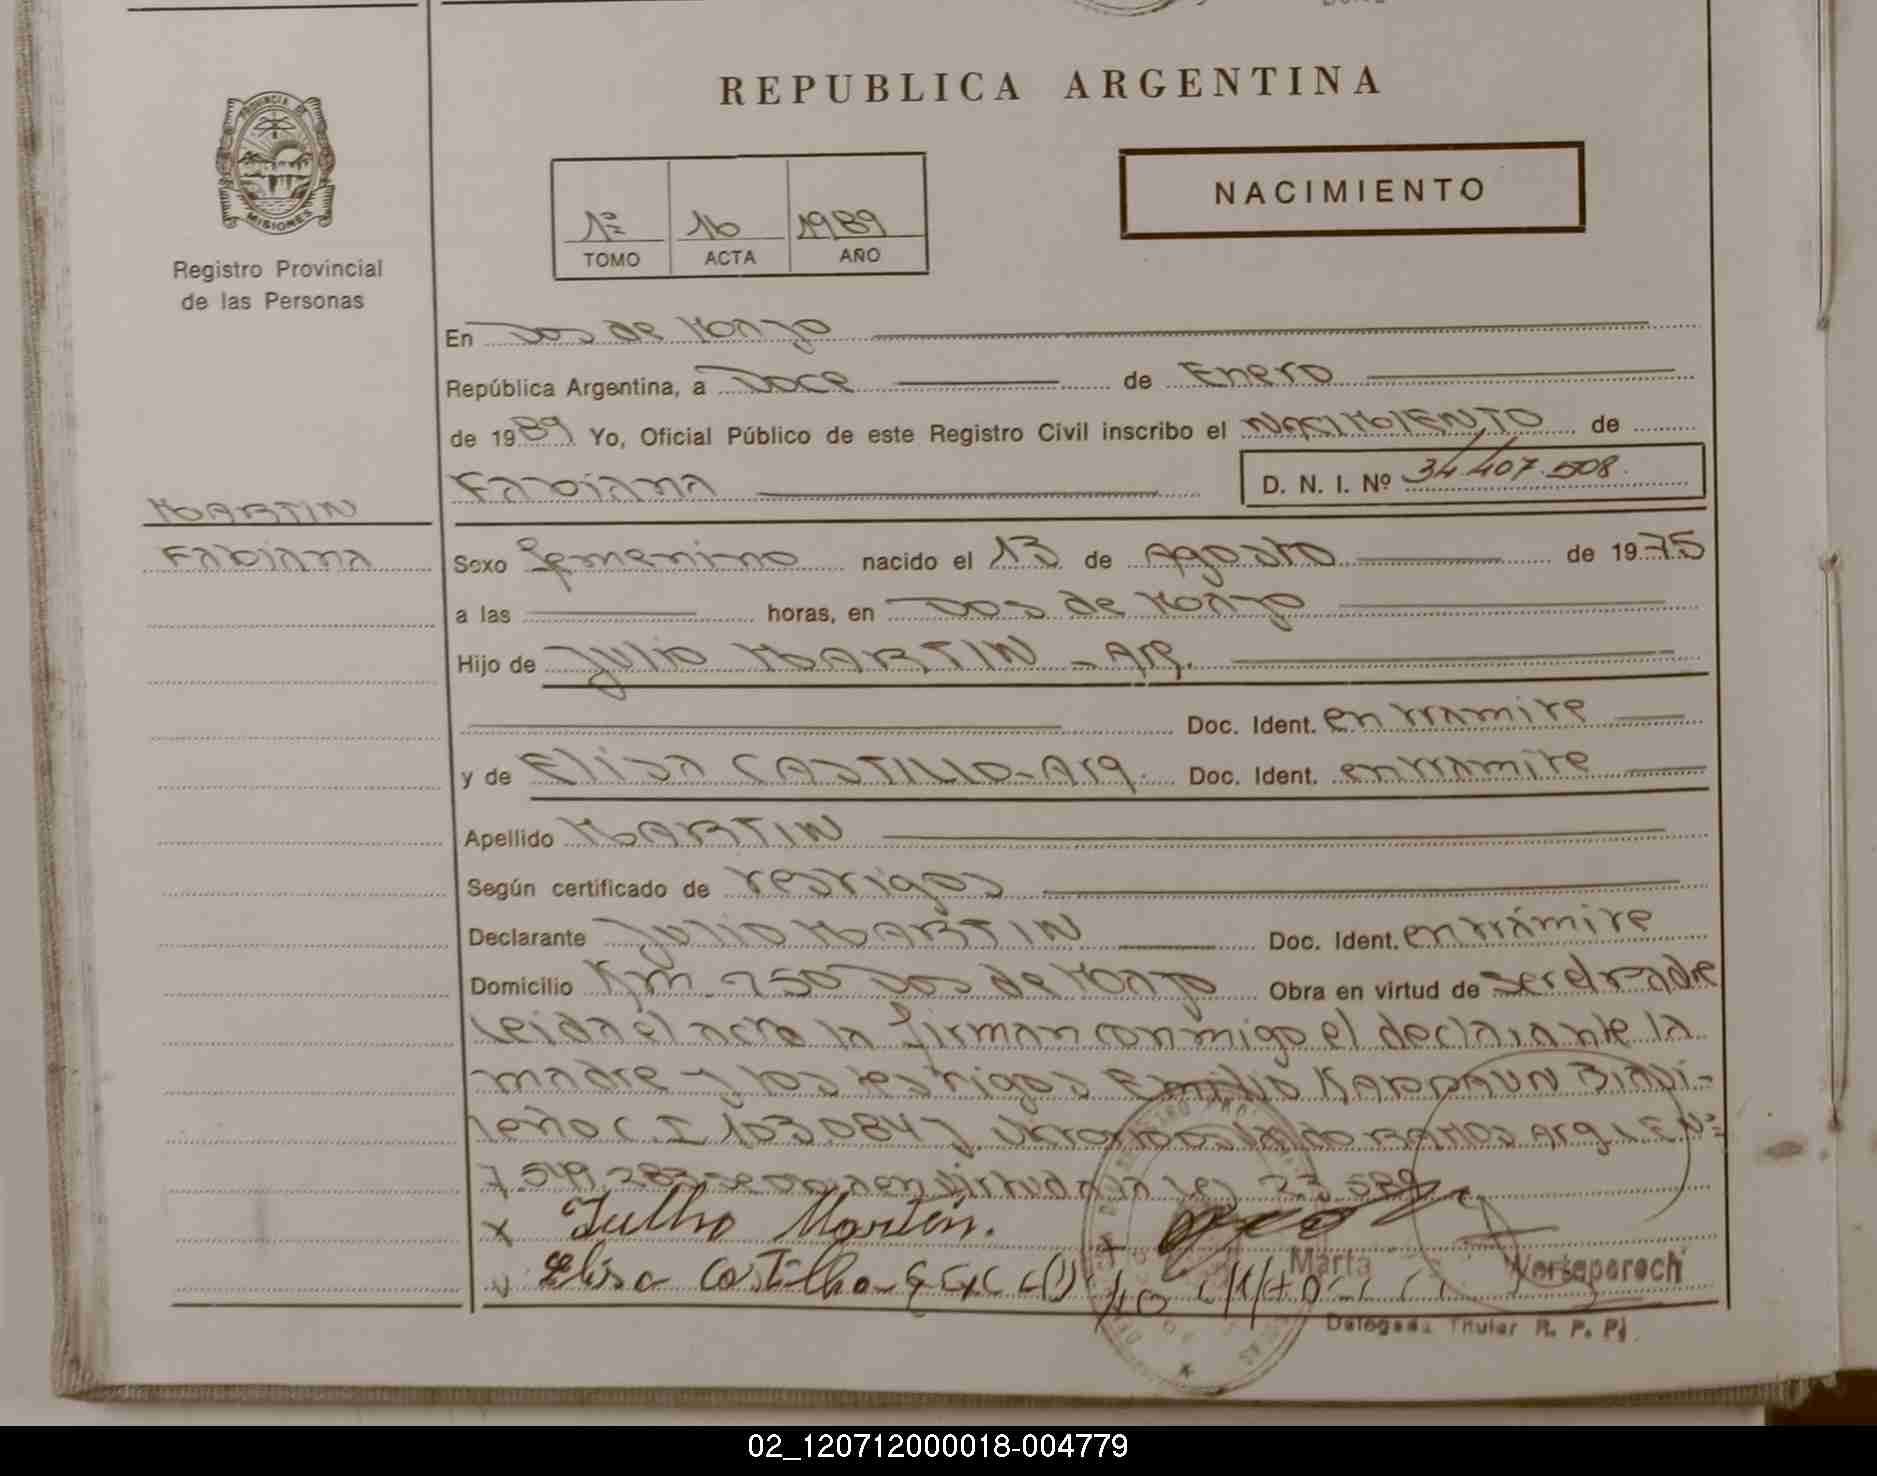 REPUBLICA ARGENTINA
PROVINCIA DE
MISIONES
Registro Provincial
de las Personas
NACIMIENTO
1º 16 1989
TOMO ACTA AÑO
En Dos de Mayo
República Argentina, a Doce de Enero
de 1989 Yo, Oficial Público de este Registro Civil inscribo el NACIMIENTO de
Fabiana D. N. I. Nº 34.407.508.
MARTIN
Fabiana
Sexo femenino nacido el 13 de Agosto de 1975
a las horas, en Dos de Mayo
Hijo de Julio MARTIN - Arg.
Doc. Ident. en tramite
y de Elisa CASTILLO - Arg. Doc. Ident. en tramite
Apellido MARTIN
Según certificado de testigos
Declarante Julio MARTIN Doc. Ident. en trámite
Domicilio Km. 250 Dos de Mayo Obra en virtud de ser el padre
leida el acta la firman conmigo el declarante la
madre y los testigos Emilio Brasi-
leño C.I 1030847 y RAMOS Arg. L.E Nº
7.519.283 se en virtud a la ley
x Julho Martin.
Elisa Costilho
Marta
Delegada Titular R. P. P.
02_120712000018-004779